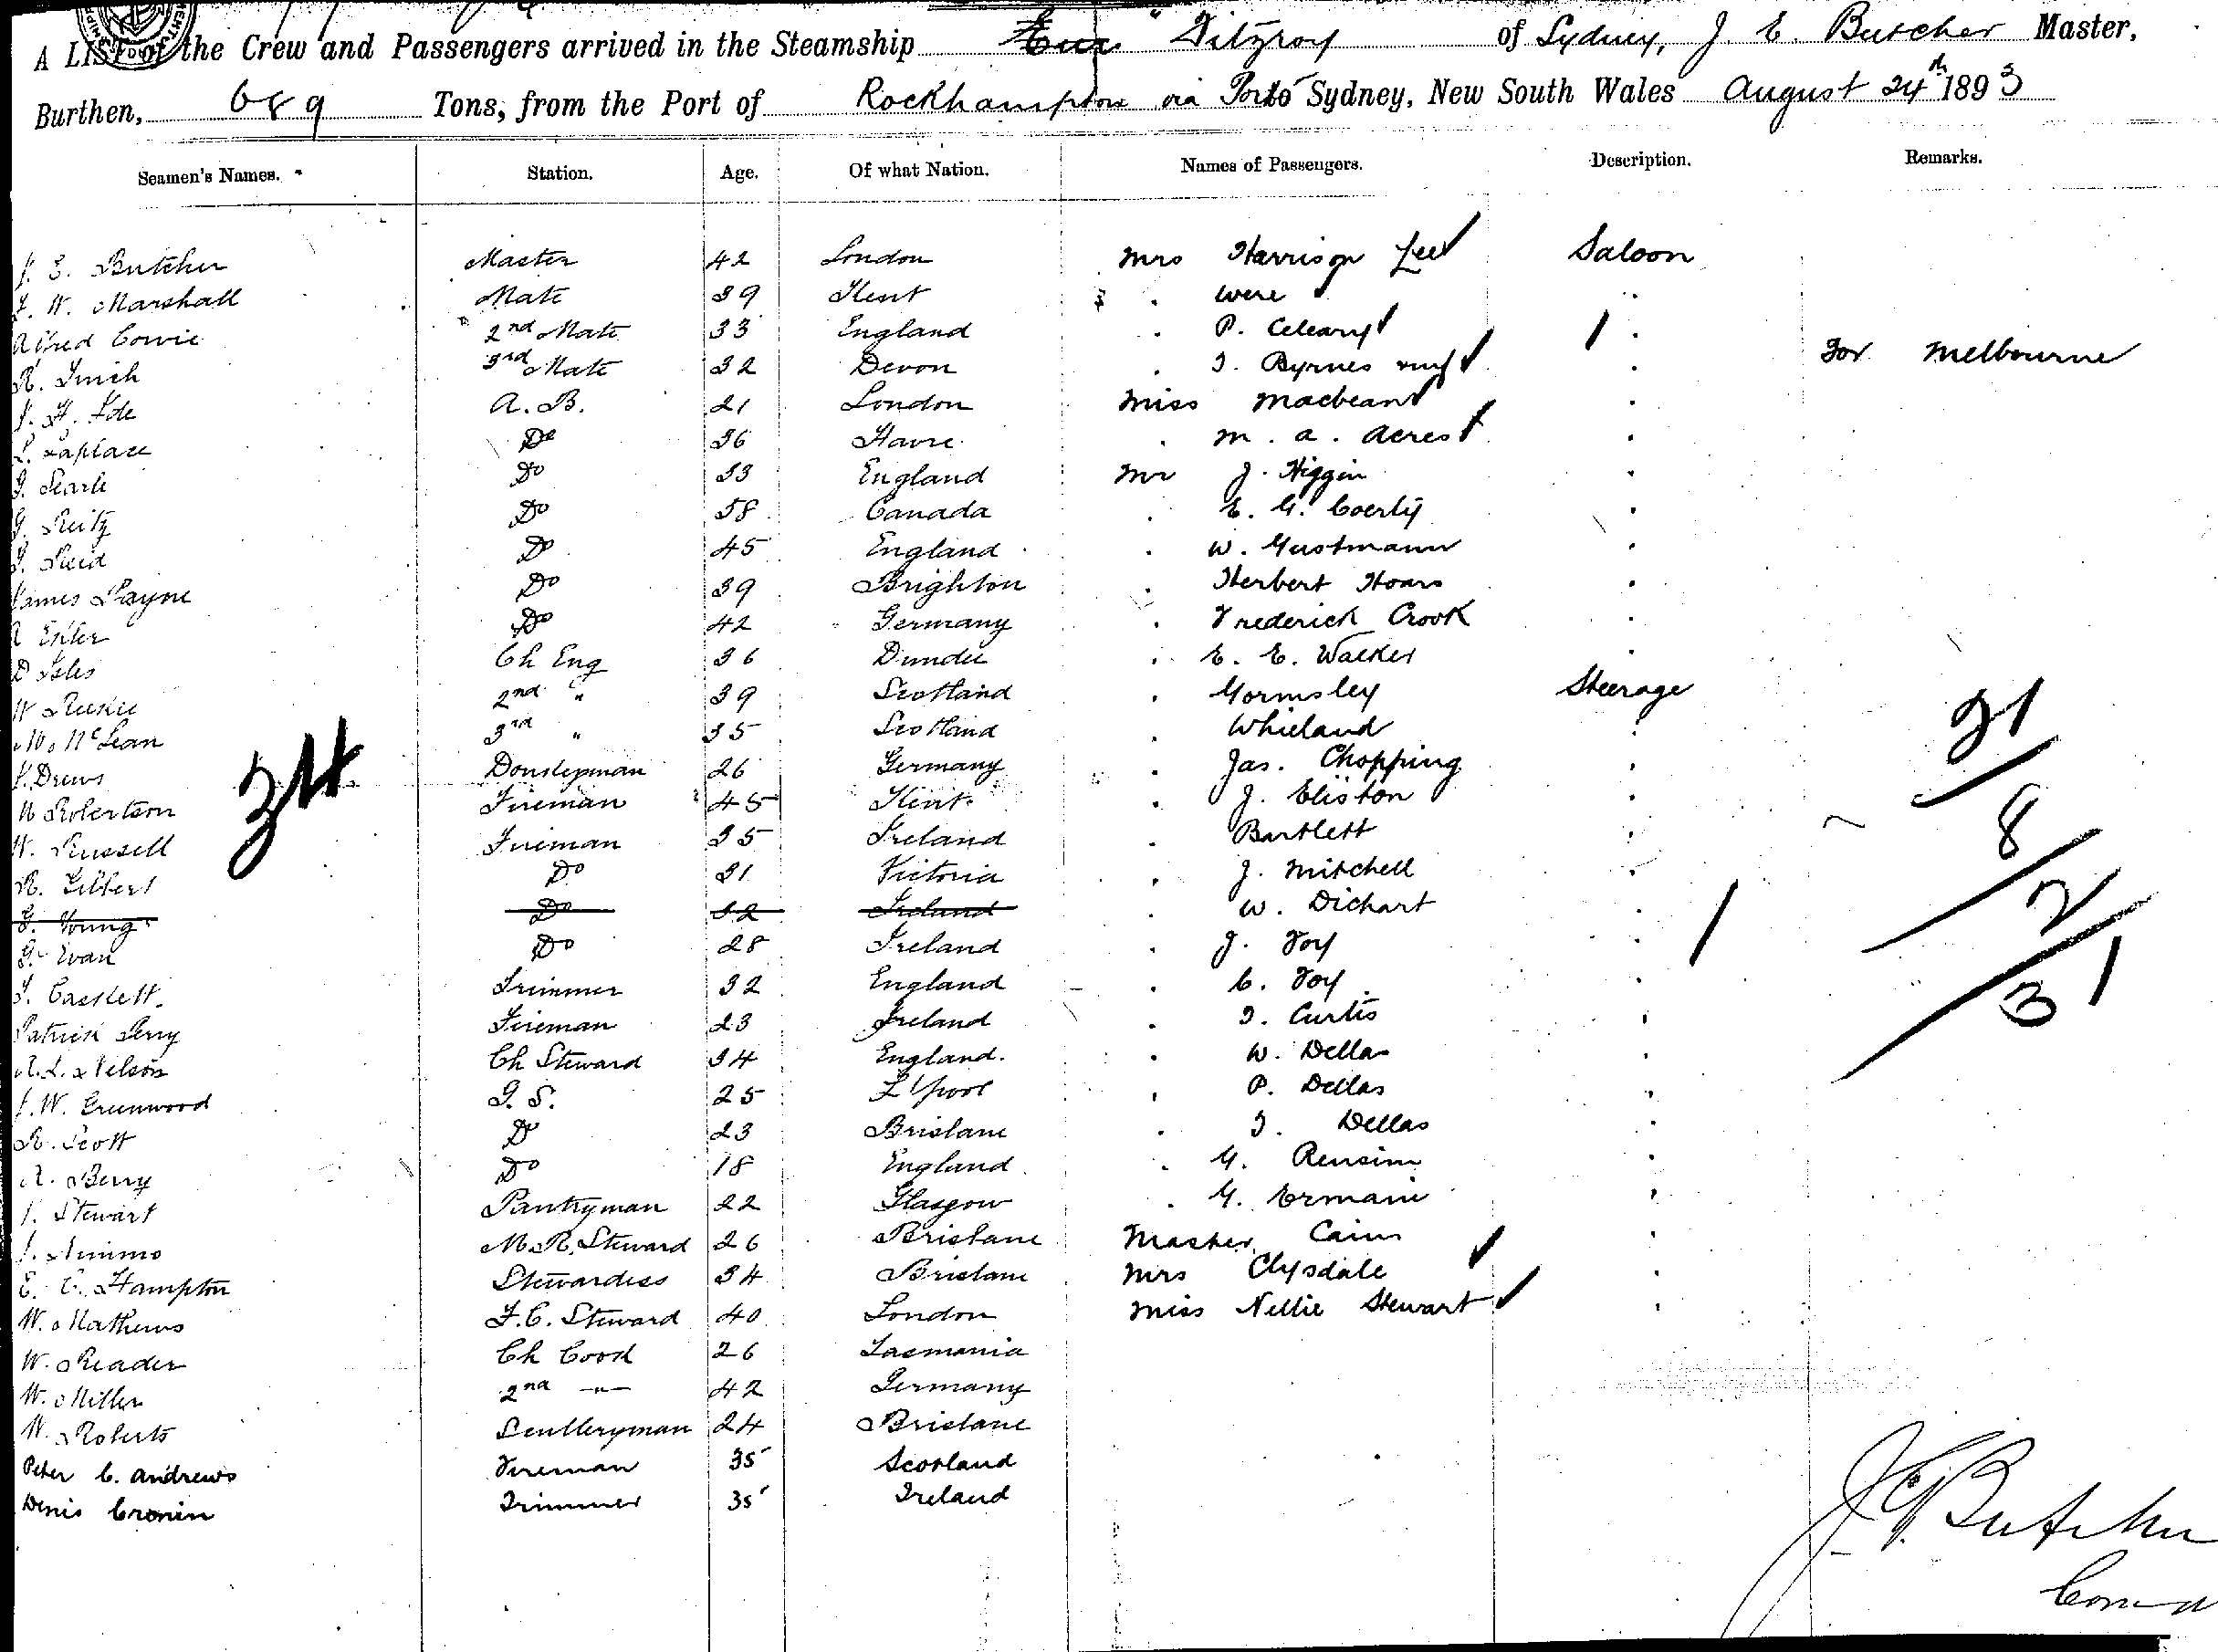 A LIST of the Crew and Passengers arrived in the Steamship " Fitzroy of Sydney, J. E. Butcher Master,
Burthen, 689 Tons, from the Port of Rockhampton via Ports Sydney, New South Wales August 24th 1893
Seamen's Names. Station. Age. Of what Nation. Names of Passengers. Description. Remarks.
J. E. Butcher Master 42 London Mrs Harrison Lee Saloon
J. W. Marshall Mate 39 Kent " Were "
Alfred Cowie 2nd Mate 33 England " P. Cleary 1 "
R. Finch 3rd Mate 32 Devon " T. Byrnes "  For Melbourne
J. H. Ide A.B. 21 London Miss Macbean "
L. Laplace Do 36 Havre " M. A. Acres "
G. Searle Do 33 England Mr J. Higgin "
G. Reitz Do 58 Canada " E. G. Coerly "
J. Reid Do 45 England " W. Gustmann "
James Payne Do 39 Brighton " Herbert Hoare "
A Exler Do 42 Germany " Frederick Crook "
D Isles Ch Eng 36 Dundee " E. E. Walker "
W Reekie 2nd " 39 Scotland " Gormsley Steerage
M. McLean 3rd " 35 Scotland " Whieland "
J. Drews Donkeyman 26 Germany " Jas. Chopping "
W Robertson Fireman 45 Kent " J. Eliston "
W. Russell Fireman 35 Ireland " Bartlett "
R. Gilbert Do 31 Victoria " J. Mitchell "
G. Young Do 32 Ireland " W. Dichart "
G. Evan Do 28 Ireland " J. Foy "
T. Caskett Trimmer 32 England " C. Foy "
Patrick Perry Fireman 23 Ireland " T. Curtis "
A. L. Nelson Ch Steward 34 England. " W. Dellas "
J. W. Greenwood G. S. 25 L'pool " P. Dellas "
R. Scott Do 23 Brisbane " T. Dellas "
A. Berry Do 18 England " G. Rensim "
J. Stewart Pantryman 22 Glasgow " G. Ermani "
J. Nimmo M. R. Steward 26 Brisbane Master Cairn "
E. C. Hampton Stewardess 34 Brisbane Mrs Clysdale "
W. Mathews F.C. Steward 40 London Miss Nellie Stewart "
W. Reader Ch Cook 26 Tasmania
W. Miller 2nd " 42 Germany
W. Roberts Sculleryman 24 Brisbane
Peter C. Andrews Fireman 35 Scotland
Denis Cronin Trimmer 35 Ireland
34
21
8
2
31
J E Butcher